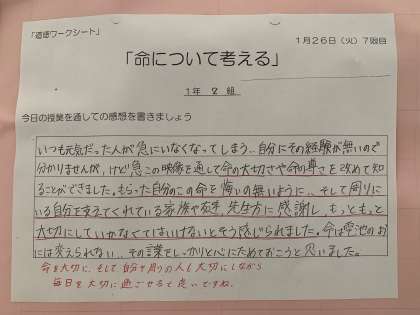 「道徳ワークシート」
1月26日（火）7限目
「命について考える」
1年 2 組
今日の授業を通しての感想を書きましょう
いつも元気だった人が急にいなくなってしまう、自分にその経験が無いので
分かりませんが、けど急この映像を通して命の大切さや命の尊さを改めて知
ることができました。もらった自分のこの命を悔いの無いように、そして周りに
いる自分を支えてくれている家族や友達、先生方に感謝し、もっともっと
大切にしていかなくてはいけないとそう感じられました。命は電池のお
には変えられない、その言葉をしっかりと心にためておこうと思いました。
命を大切に、そして自分や周りの人も大切にしながら
毎日を大切に過ごせると良いですね。